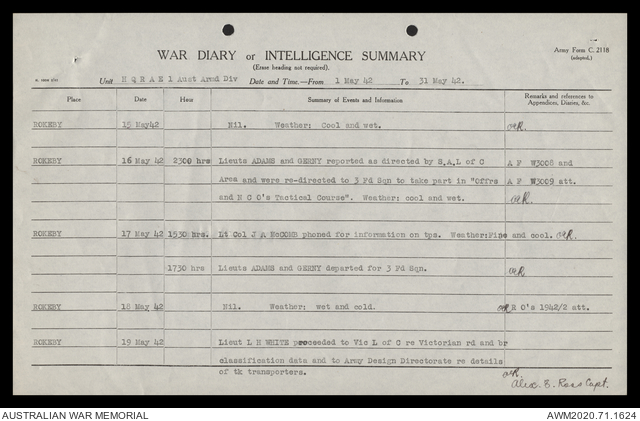 Army Form C. 2118
(adapted.)
WAR DIARY or INTELLIGENCE SUMMARY
(Erase heading not required).
Unit H Q H A E 1 Aust Armd Div Date and Time.—From 1 May 42 To 31 May 42.
Place Date Hour Summary of Events and Information Remarks and references to
Appendices, Diaries, &c.
ROKEBY 15 May42 Nil. Weather: Cool and wet.
ROKEBY 16 May 42 2300 hrs Lieuts ADAMS and GERNY reported as directed by S.A.L of C A F W3008 and
Area and were re-directed to 3 Fd Sqn to take part in "Offrs A F W3009 att.
and N C O's Tactical Course". Weather: cool and wet.
ROKEBY 17 May 42 1530 hrs. Lt Col J A McCOMB phoned for information on tps. Weather:Fine and cool.
1730 hrs Lieuts ADAMS and GERNY departed for 3 Fd Sqn.
ROKEBY 18 May 42 Nil. Weather: wet and cold. R O's 1942/2 att.
ROKEBY 19 May 42 Lieut L H WHITE proceeded to Vic L of C re Victorian rd and br
classification data and to Army Design Directorate re details
of tk transporters.
Alex. B. Ross Capt.
AUSTRALIAN WAR MEMORIAL AWM2020.71.1624